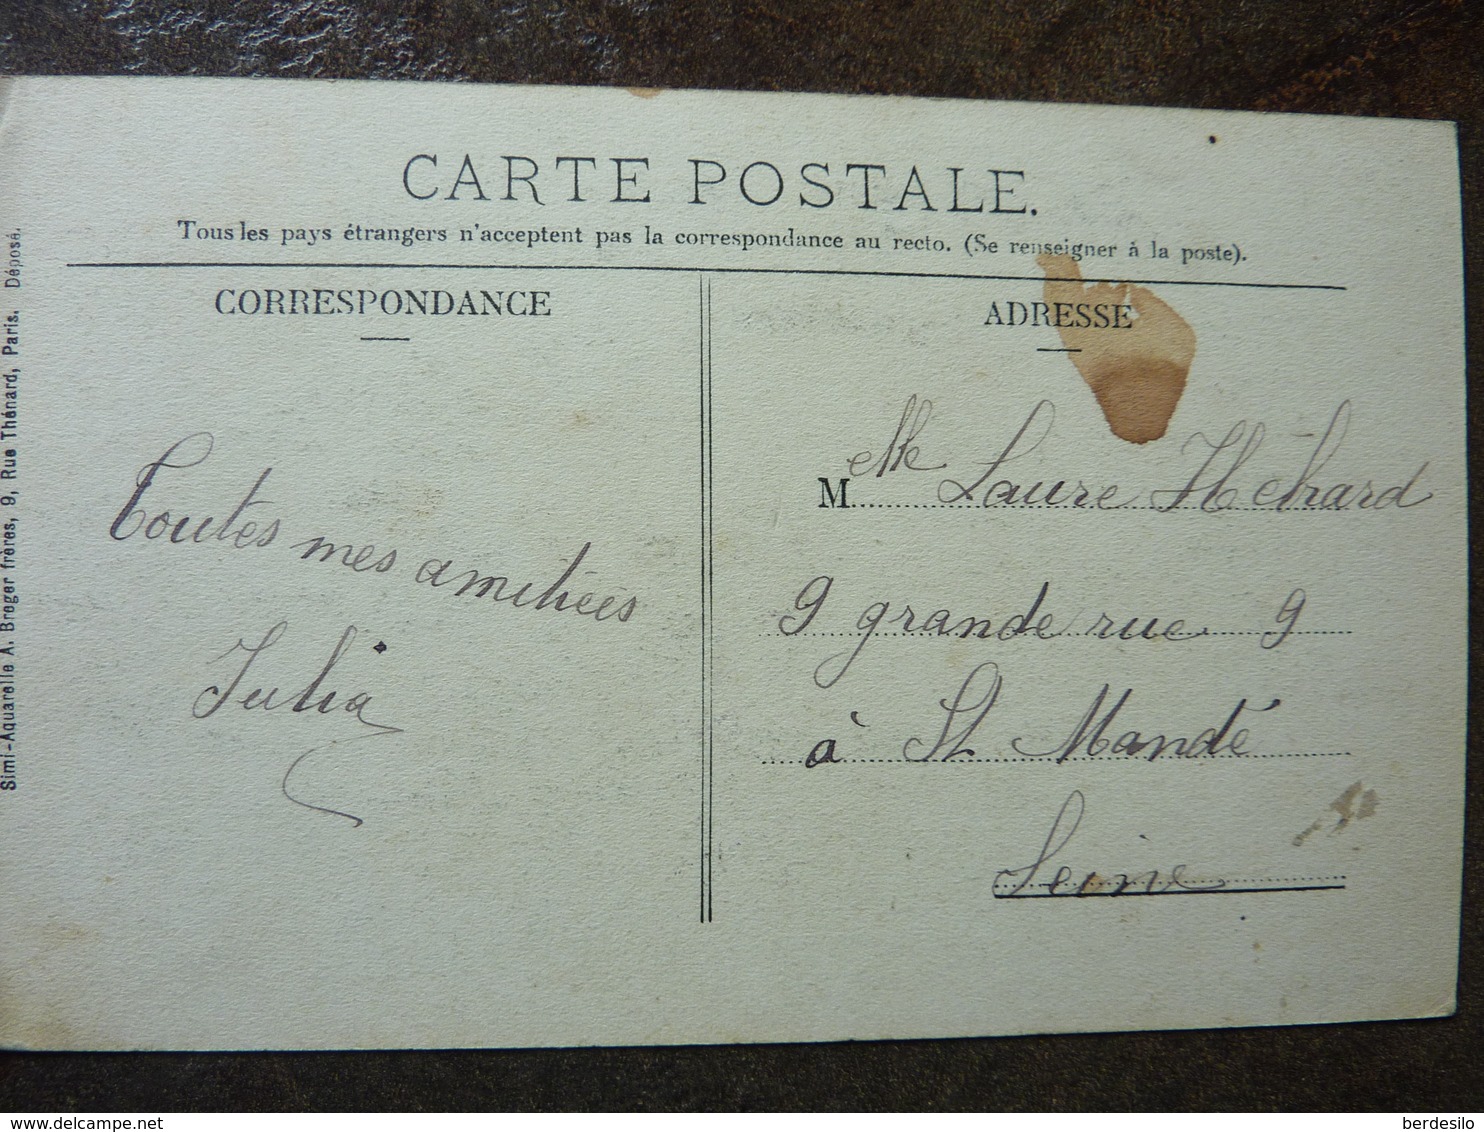 CARTE POSTALE.
Tous les pays étrangers n'acceptent pas la correspondance au recto. (Se renseigner à la poste).
CORRESPONDANCE
Toutes mes amitiées
Julia
ADRESSE
Melle Laure Hehard
9 grande rue 9
à St Mandé
Seine
Simi-Aquarelle A. Breger frères, 9, Rue Thénard, Paris. Déposé.
berdesilo